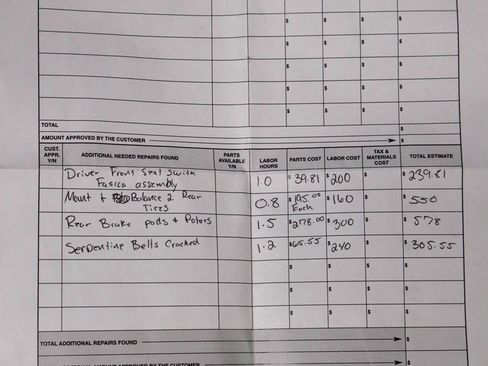 TOTAL
AMOUNT APPROVED BY THE CUSTOMER
CUST. APPR. Y/N ADDITIONAL NEEDED REPAIRS FOUND PARTS AVAILABLE Y/N LABOR HOURS PARTS COST LABOR COST TAX & MATERIALS COST TOTAL ESTIMATE
Driver Front Seat Switch 1.0 $39.81 $200 $ $239.81
Fasica assembly
Mount + Balance 2 Rear 0.8 $195.00 $160 $ $550
Tires Each
Rear Brake pads + Rotors 1.5 $278.00 $300 $ $578
Serpentine Belts Cracked 1.2 $65.55 $240 $ $305.55
TOTAL ADDITIONAL REPAIRS FOUND $
AMOUNT APPROVED BY THE CUSTOMER